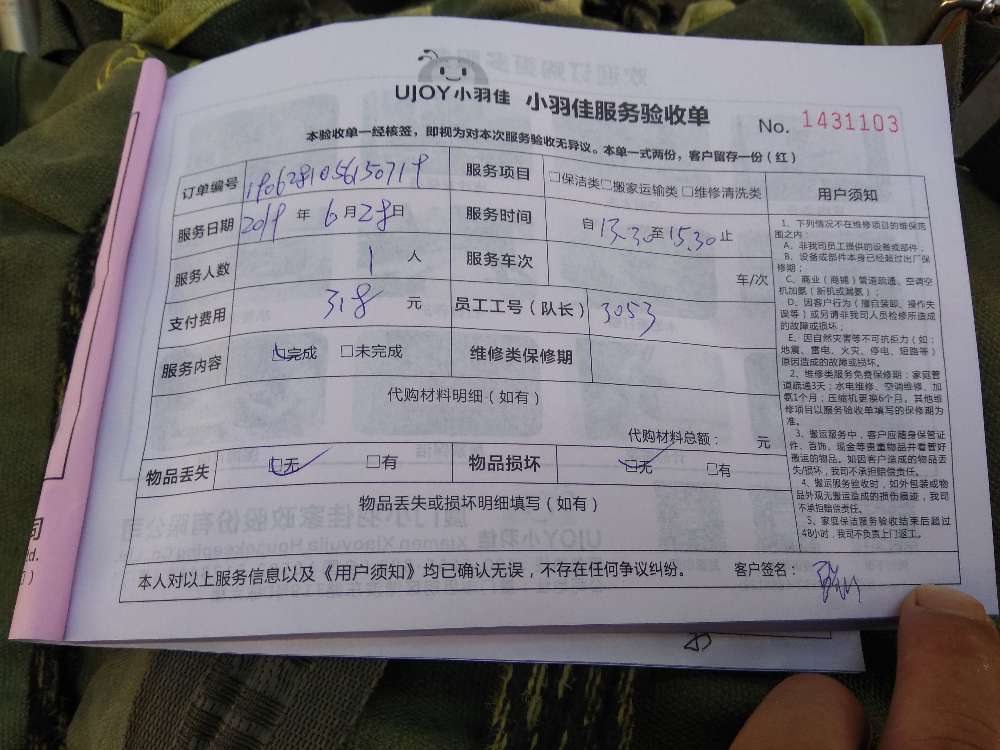 UJOY小羽佳 小羽佳服务验收单
No. 1431103
本验收单一经核签，即视为对本次服务验收无异议。本单一式两份，客户留存一份（红）
订单编号 1906281056150719 服务项目 □保洁类□搬家运输类 □维修清洗类
服务日期 2019 年 6 月 28 日 服务时间 自 13.30 至 15.30 止
服务人数 1 人 服务车次 车/次
支付费用 318 元 员工工号（队长） 3053
服务内容 □完成 □未完成 维修类保修期
代购材料明细（如有）
代购材料总额： 元
物品丢失 □无 □有 物品损坏 □无 □有
物品丢失或损坏明细填写（如有）
本人对以上服务信息以及《用户须知》均已确认无误，不存在任何争议纠纷。 客户签名：
用户须知
1、下列情况不在维修项目的维保范
围之内：
A、非我司员工提供的设备或部件；
B、设备或部件本身已经超过出厂保
修期；
C、商业（商铺）管道疏通、空调空
机加氨（新机或漏氨）；
D、因客户行为（擅自装卸、操作失
误等）或另请非我司人员检修所造成
的故障或损坏；
E、因自然灾害等不可抗拒力（如：
地震、雷电、火灾、停电、短路等）
原因造成的故障或损坏。
2、维修类服务免费保修期：家庭管
道疏通3天；水电维修、空调维修、加
氨1个月；压缩机更换6个月。其他维
修项目以服务验收单填写的保修期为
准。
3、搬运服务中，客户应随身保管证
件、首饰、现金等贵重物品并看管好
搬运的物品。如因客户造成的物品丢
失/损坏，我司不承担赔偿责任。
4、搬运服务验收时，如外包装或物
品外观无搬运造成的损伤痕迹，我司
不承担赔偿责任。
5、家庭保洁服务验收结束后超过
48小时，我司不负责上门返工。
司
td.